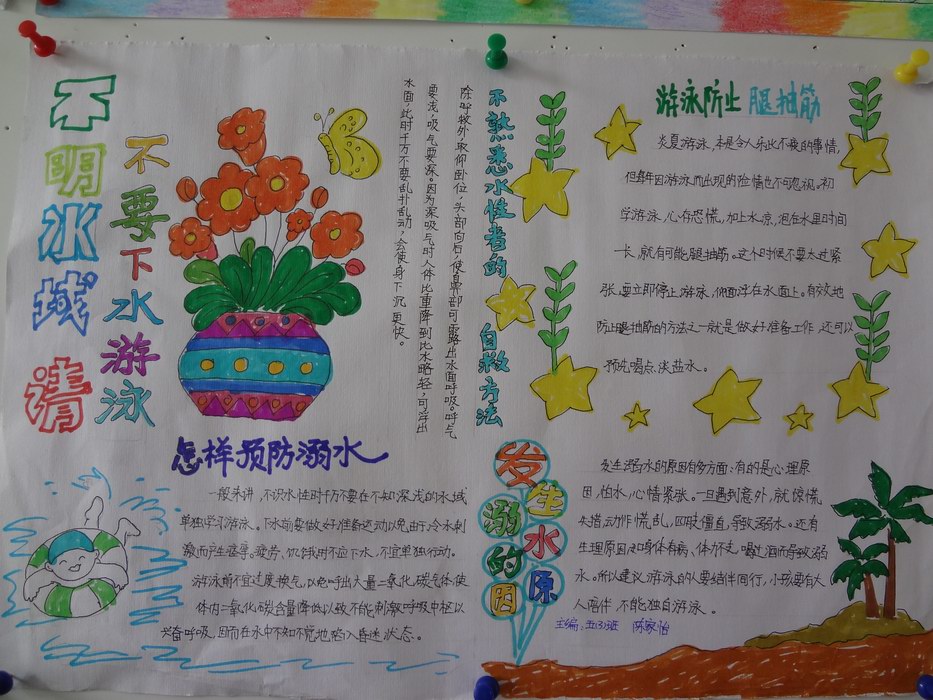 不明水域 请
不要下水游泳
不熟悉水性者的 自救方法
除呼救外,取仰卧位,头部向后,使鼻部可露出水面呼吸。呼气
要浅,吸气要深。因为深吸气时人体比重降到比水略轻,可浮出
水面,此时千万不要乱扑乱动,会使身下沉更快。
游泳防止腿抽筋
炎夏游泳,本是令人乐此不疲的事情,
但每年因游泳而出现的险情也不可忽视。初
学游泳,心存恐慌,加上水凉,泡在水里时间
一长,就有可能腿抽筋。这个时候不要太过紧
张,要立即停止游泳,仰面浮在水面上。有效地
防止腿抽筋的方法之一就是做好准备工作,还可以
预先喝点淡盐水。
怎样预防溺水
一般来讲,不识水性时千万不要在不知深浅的水域
单独学习游泳。下水前要做好准备运动以免由于冷水刺
激而产生痉挛。疲劳、饥饿时不应下水,不宜单独行动。
游泳前不宜过度换气,以免呼出大量二氧化碳气体使
体内二氧化碳含量降低以致不能刺激呼吸中枢以
兴奋呼吸,因而在水中不知不觉地陷入昏迷状态。
发生溺水的原因
发生溺水的原因有多方面:有的是心理原
因,怕水,心情紧张。一旦遇到意外,就惊慌
失措,动作慌乱,四肢僵直,导致溺水。还有
生理原因的身体有病、体力不支、喝过酒而导致溺
水。所以建议游泳的人要结伴同行,小孩要有大
人陪伴,不能独自游泳。
主编:五(3)班 陈家怡